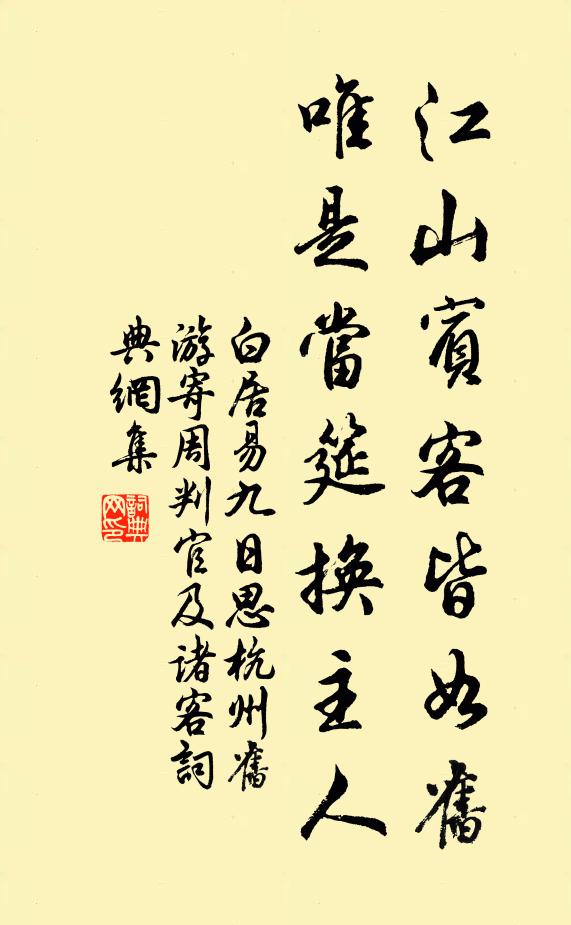 江山賓客皆如舊
唯是當筵換主人
白居易九日思杭州舊
游寄周判官及诸客詞
典網集
詞典网印